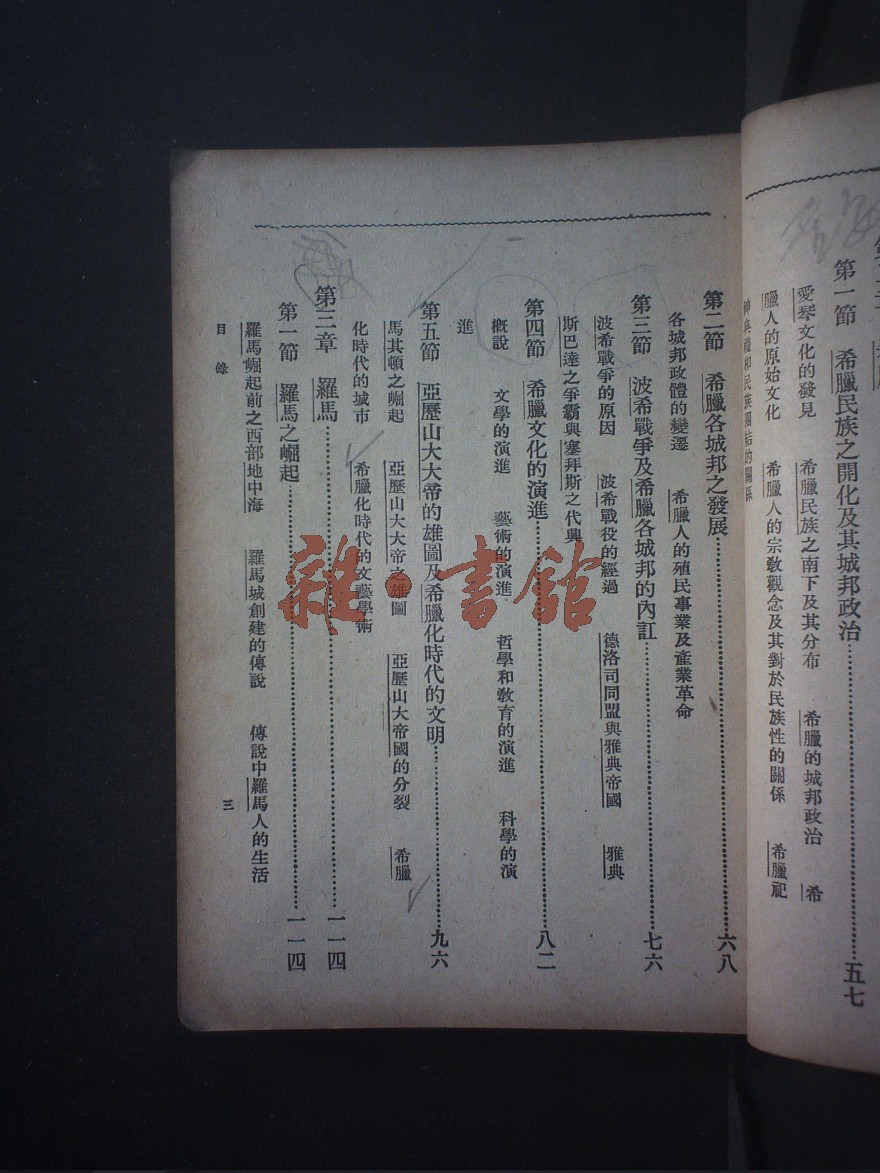 第一節　希臘民族之開化及其城邦政治……五七
愛琴文化的發見　希臘民族之南下及其分布　希臘的城邦政治　希
臘人的原始文化　希臘人的宗教觀念及其對於民族性的關係　希臘祀
神典禮和民族團結的關係
第二節　希臘各城邦之發展……六八
各城邦政體的變遷　希臘人的殖民事業及產業革命
第三節　波希戰爭及希臘各城邦的內訌……七六
波希戰爭的原因　波希戰役的經過　德洛司同盟與雅典帝國　雅典
斯巴達之爭霸與塞拜斯之代興
第四節　希臘文化的演進……八二
概說　文學的演進　藝術的演進　哲學和教育的演進　科學的演
進
第五節　亞歷山大大帝的雄圖及希臘化時代的文明……九六
馬其頓之崛起　亞歷山大大帝之雄圖　亞歷山大帝國的分裂　希臘
化時代的城市　希臘化時代的文藝學術
第三章　羅馬……一一四
第一節　羅馬之崛起……一一四
羅馬崛起前之西部地中海　羅馬城創建的傳說　傳說中羅馬人的生活
目錄　三
雜·書館